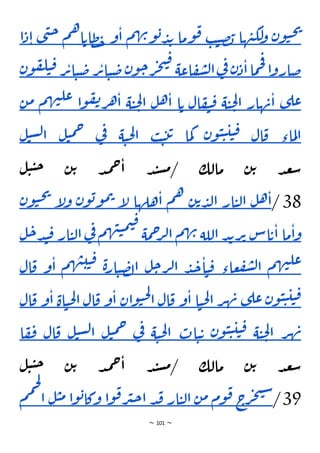 يحيون ولكنها تصيب قوما بذنوبهم أو خطاياهم حتى إذا
صاروا فحما أذن في الشفاعة فيخرجون ضبائر ضبائر فيلقون
على أنهار الجنة فيقال يا أهل الجنة أهريقوا عليهم من
الماء قال فينبتون كما تنبت الحبة في حميل السيل
سعد بن مالك /مسند أحمد بن حنبل
38/ أهل النار الذين هم أهلها لا يموتون ولا يحيون
وأما أناس يريد الله بهم الرحمة فيميتهم في النار فيدخل
عليهم الشفعاء فيأخذ الرجل الضبارة أو قال
فينبتون على نهر الحيا أو قال الحيوان أو قال الحياة أو قال
نهر الجنة فينبتون نبات الحبة في حميل السيل قال فقا
سعد بن مالك /مسند أحمد بن حنبل
39/سيخرج قوم من النار قد احترقوا وكانوا مثل الحمم
~ 101 ~